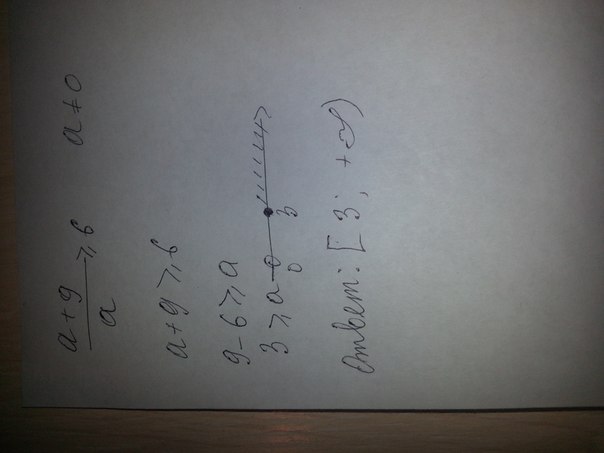 (a+9)/a ≥ 6 a ≠ 0
a+9 ≥ 6
9-6 ≥ a
3 ≥ a
0 3
Ответ: [3; +∞)